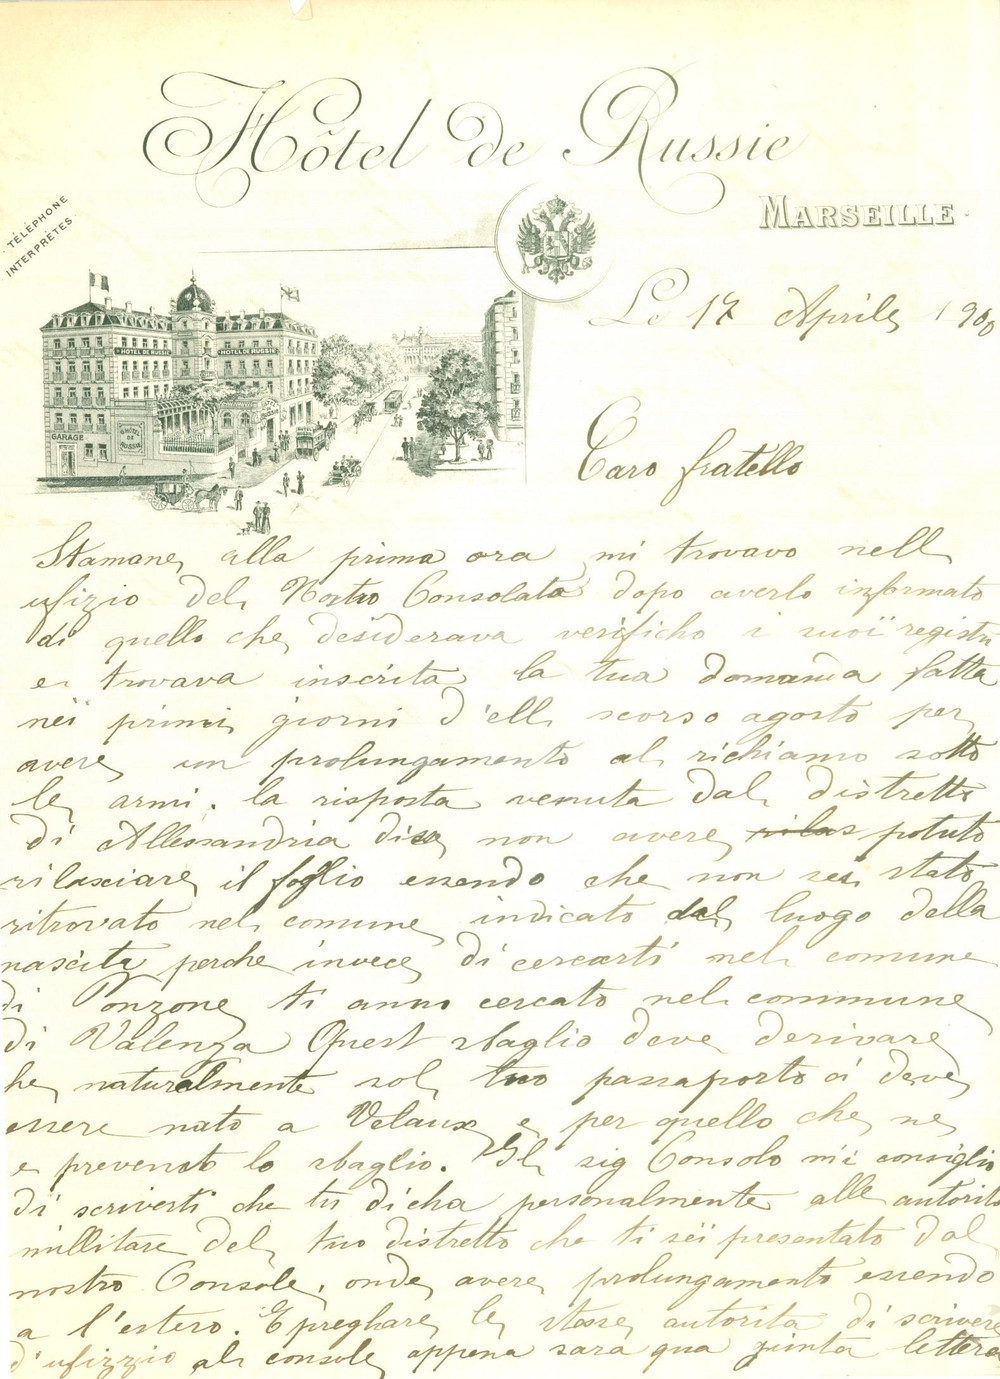 Hôtel de Russie
MARSEILLE
TÉLÉPHONE
INTERPRÈTES
HOTEL DE RUSSIE
HOTEL DE RUSSIE
GARAGE
HOTEL DE RUSSIE
Le 17 Aprile 1900
Caro fratello
Stamane alla prima ora mi trovavo nell
ufizio del Nostro Consolata dopo averlo informato
di quello che desiderava verificho i suoi registri
e trovava inscrita la tua domanda fatta
nei primi giorni d'ell scorso agosto per
avere un prolungamento al richiamo sotto
le armi. la risposta venuta dal distretto
di Allessandria dise non avere rilas potuto
rilasciare il foglio essendo che non sei stato
ritrovato nel comune indicato dal luogo della
nascita perche invece di cercarti nel comune
di Ponzone ti anno cercato nel commune
di Valenza Quest sbaglio deve derivare
he naturalmente sol tuo passaporto ci deve
essere nato a Velaux e per quello che ne
e prevenuto lo sbaglio. Il sig Consolo mi consiglio
di scriverti che tu dicha personalmente alle autorita
millitare del tuo distretto che ti sei presentato dal
nostro Console, onde avere prolungamento essendo
a l'estero. E preghare le stesse autorita di scrivere
d'ufizzio al console appena sara qua giunta lettera